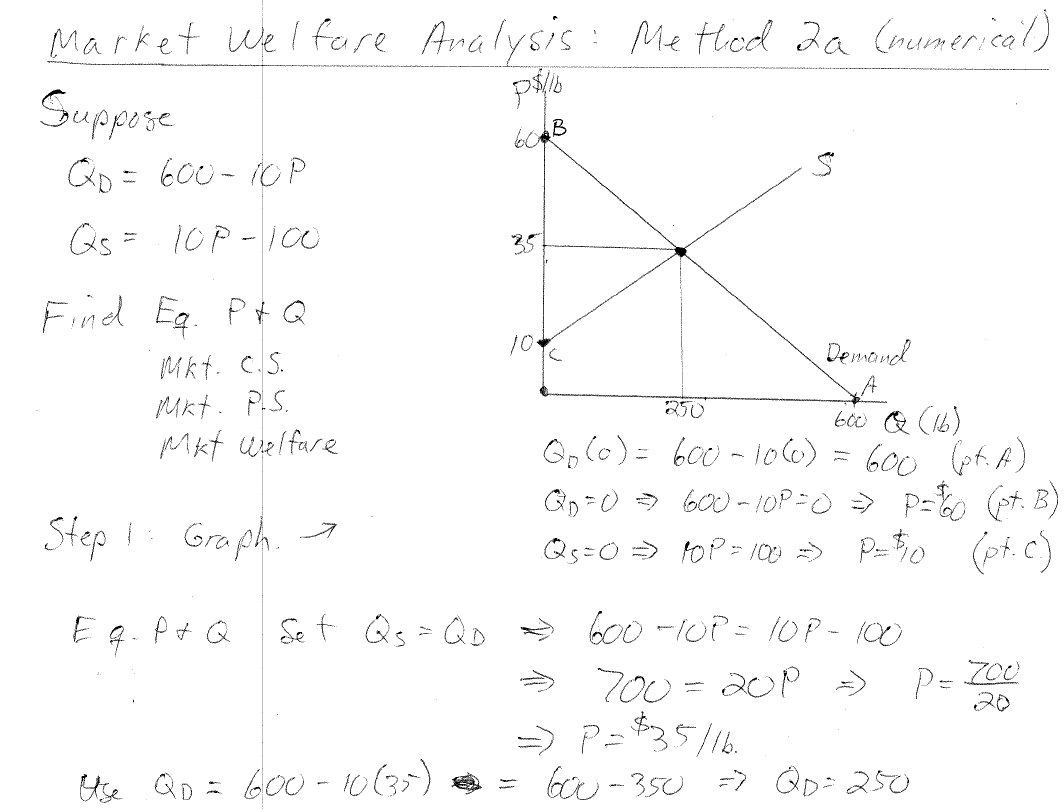 Market Welfare Analysis: Method 2a (numerical)
Suppose
QD = 600 - 10P
QS = 10P - 100
Find Eq. P + Q
Mkt. C.S.
Mkt. P.S.
Mkt Welfare
Step 1: Graph. →
P $/lb
60 B
S
35
10 C
Demand
A
250
600 Q (lb)
QD(0) = 600 - 10(0) = 600 (pt. A)
QD=0 ⇒ 600-10P=0 ⇒ P=$60 (pt. B)
QS=0 ⇒ 10P=100 ⇒ P=$10 (pt. C)
Eq. P + Q Set QS = QD ⇒ 600-10P = 10P - 100
⇒ 700 = 20P ⇒ P = 700/20
⇒ P = $35/lb.
Use QD = 600 - 10(35) = 600 - 350 ⇒ QD = 250